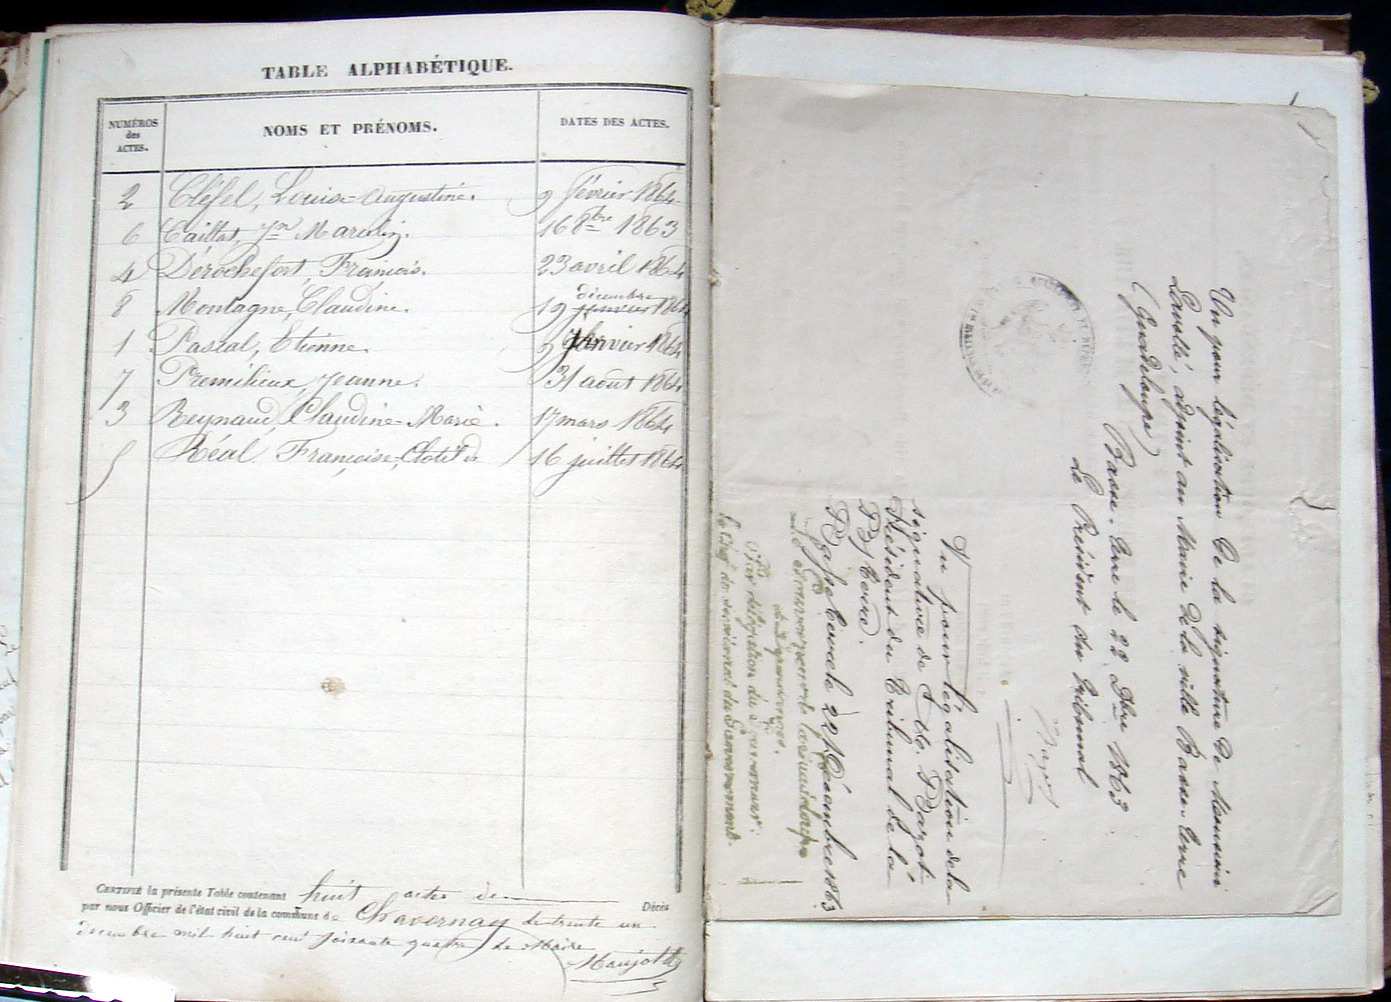 TABLE ALPHABÉTIQUE.
NUMÉROS des ACTES.
NOMS ET PRÉNOMS.
DATES DES ACTES.
2 Cléfel, Louise-Augustine. 9 février 1864
6 Caillat, Jn Marcelin. 16 8bre 1863
4 Dérochefort, François. 23 avril 1864
8 Montagne, Claudine. 19 décembre 1864
1 Pascal, Etienne. 9 janvier 1864
7 Premilieux, Jeanne. 31 août 1864
3 Reynaud, Claudine-Marie. 17 mars 1864
5 Réal Françoise, Clotilde 16 juillet 1864
CERTIFIÉ la présente Table contenant huit actes de Décès
par nous Officier de l'état civil de la commune de Chavernay le trente un
décembre mil huit cent soixante quatre Le Maire
Vu pour légalisation de la signature de Monsieur
Lavallé, adjoint au Maire de la ville Basse-Terre
(Guadeloupe)
Basse-Terre le 22 Xbre 1863
Le Président du tribunal
Vu pour légalisation de la
signature de M. Bazot
Président du Tribunal de la
B/Terre.
Basse terre le 22 Décembre 1863
Par délégation du Gouverneur:
Le Chef du secrétariat du Gouvernement.